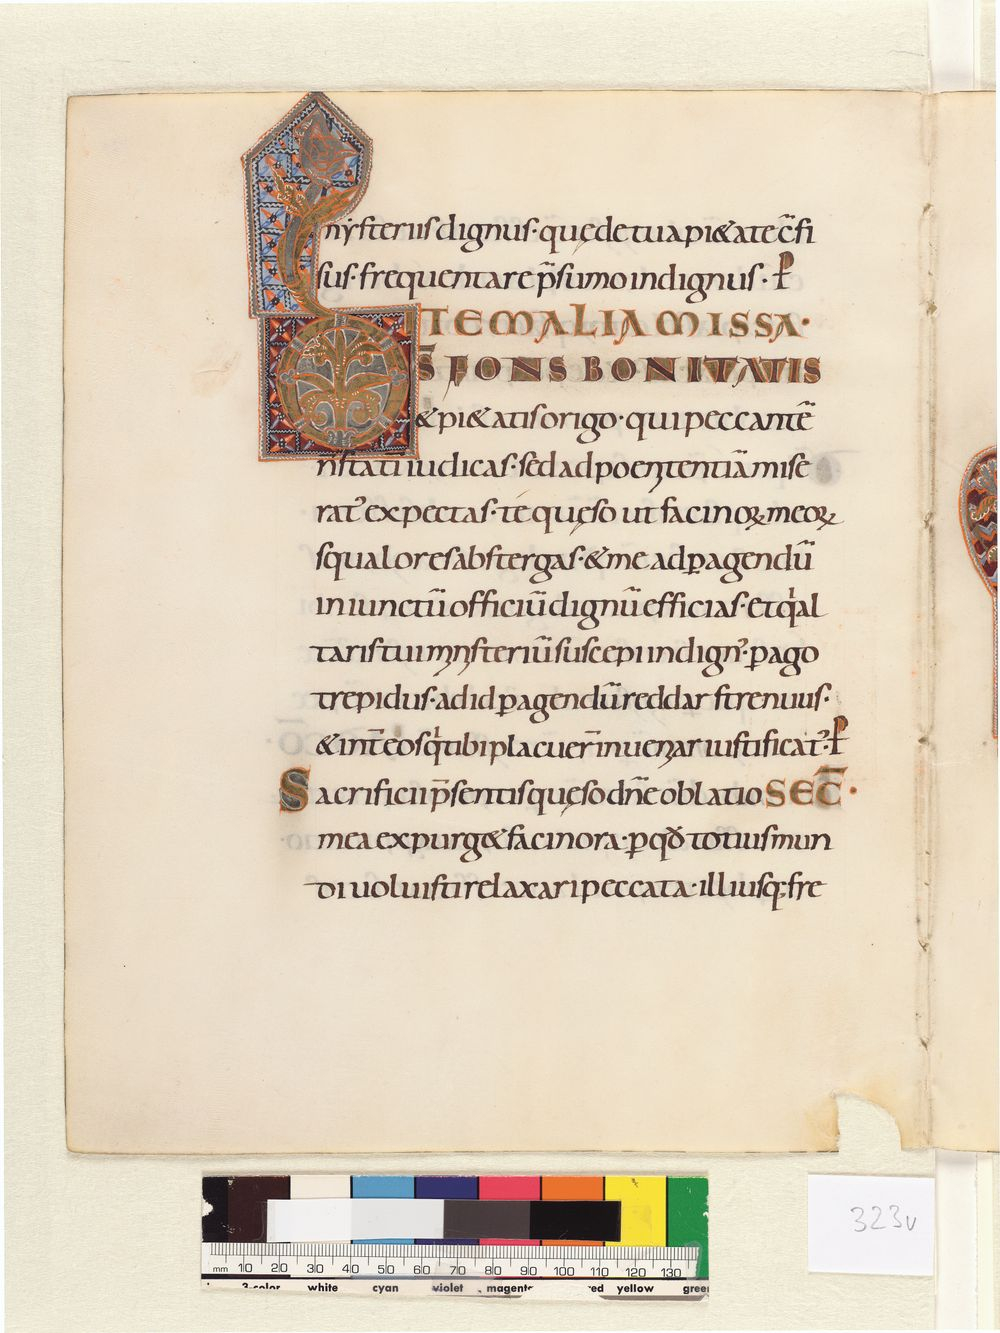 mysteriis dignus· quę de tua pi&ate c̄fi
sus· frequentare p̄sumo indignus· P̄
ITEM ALIA MISSA·
D̄S FONS BONITATIS
& pi&atis origo· qui peccantē
n statī iudicas· sed ad poenitentiā mise
rat᾿ expectas· té quęso ut facinoꝝ meoꝝ
squalores abstergas· & me ad ꝑagendū
iniunctū officiū dignū efficias· et q̍ al
taris tui mysteriū suscepi indign᾿· ꝑago
trepidus· ad id ꝑagendū reddar strenuus·
& int̄ eos q̍ tibi placuer̄ inueniar iustificat᾿· P̄
Sacrificii p̄sentis quęso dn̄e oblatio SEC̄·
mea expurg& facinora· ꝑ qđ totius mun
di uoluisti relaxari peccata· illiusq; fre
323v
mm 10 20 30 40 50 60 70 80 90 100 110 120 130
3-color white cyan violet magenta red yellow green